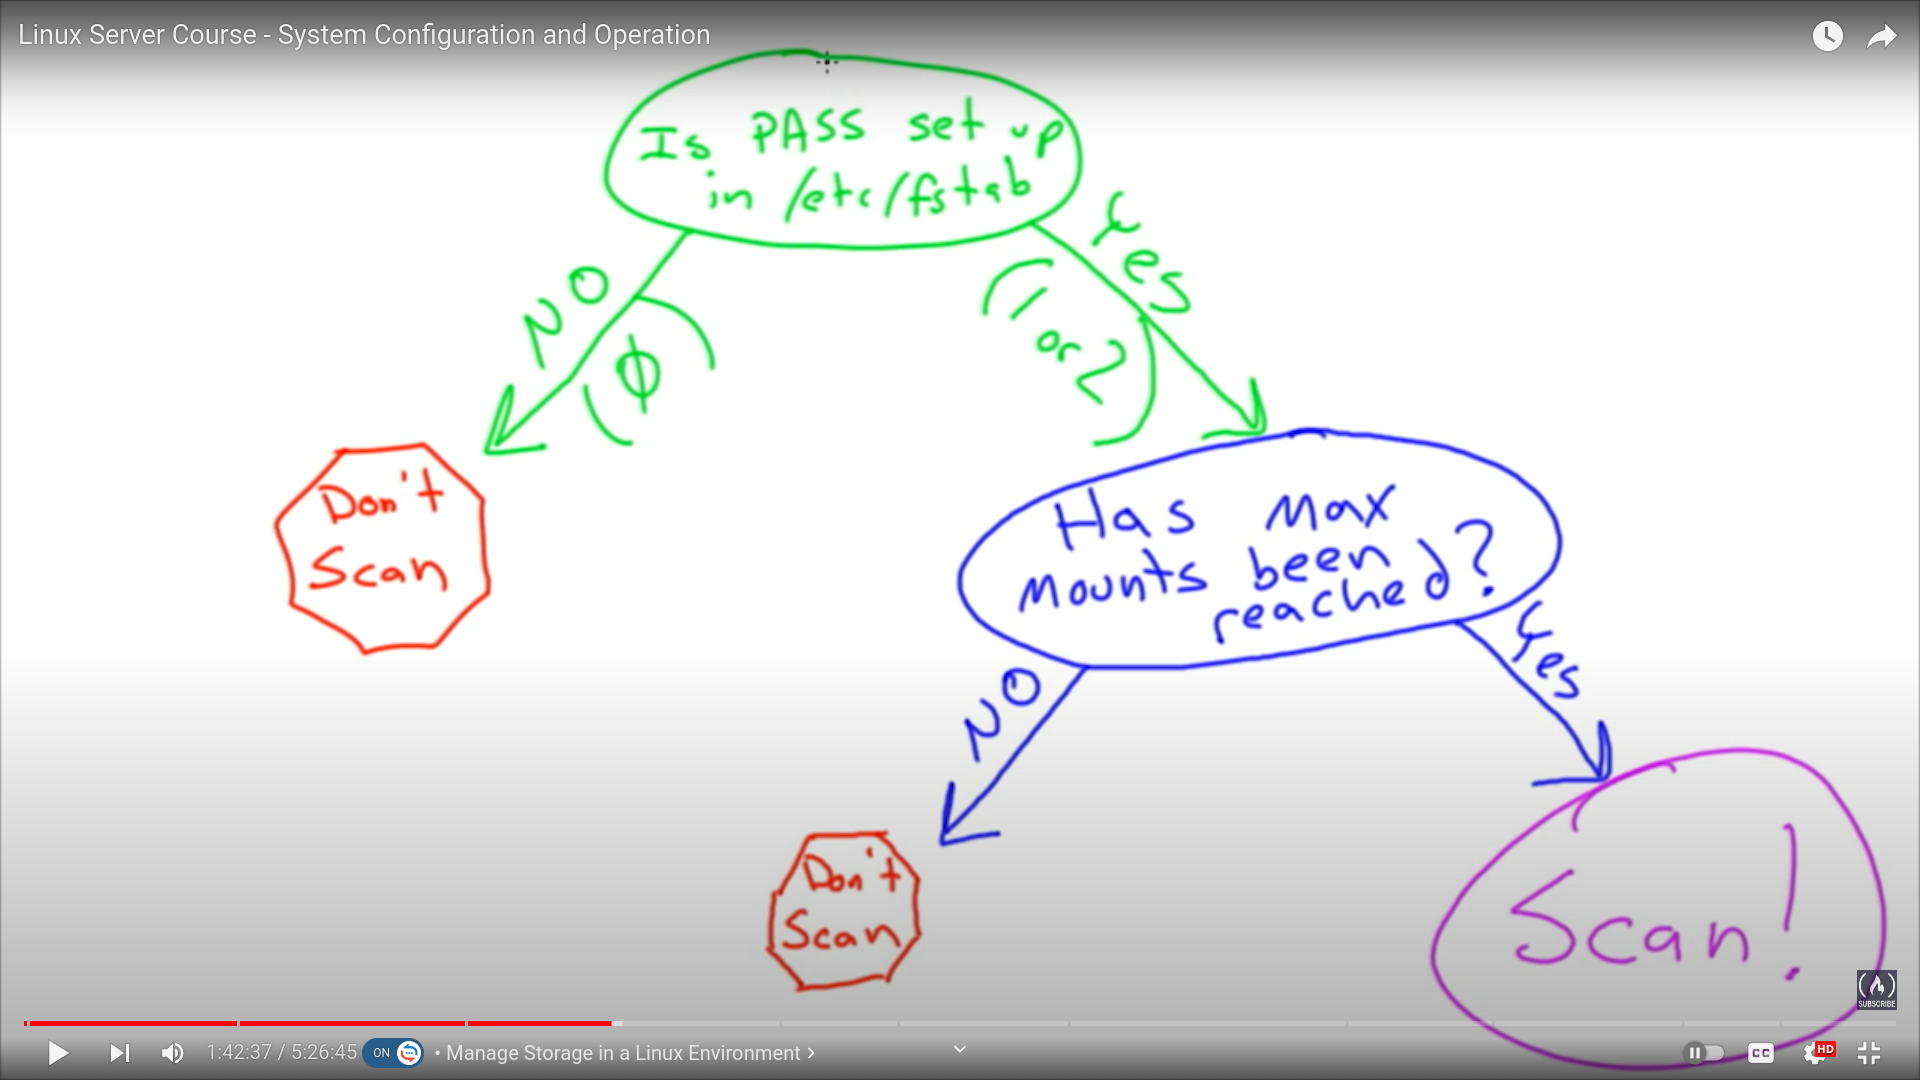 Linux Server Course - System Configuration and Operation
Is PASS set up
in /etc/fstab
NO
(0)
Yes
(1 or 2)
Don't
Scan
Has Max
Mounts been
reached?
NO
Yes
Don't
Scan
Scan!
SUBSCRIBE
1:42:37 / 5:26:45
ON
• Manage Storage in a Linux Environment
CC
HD